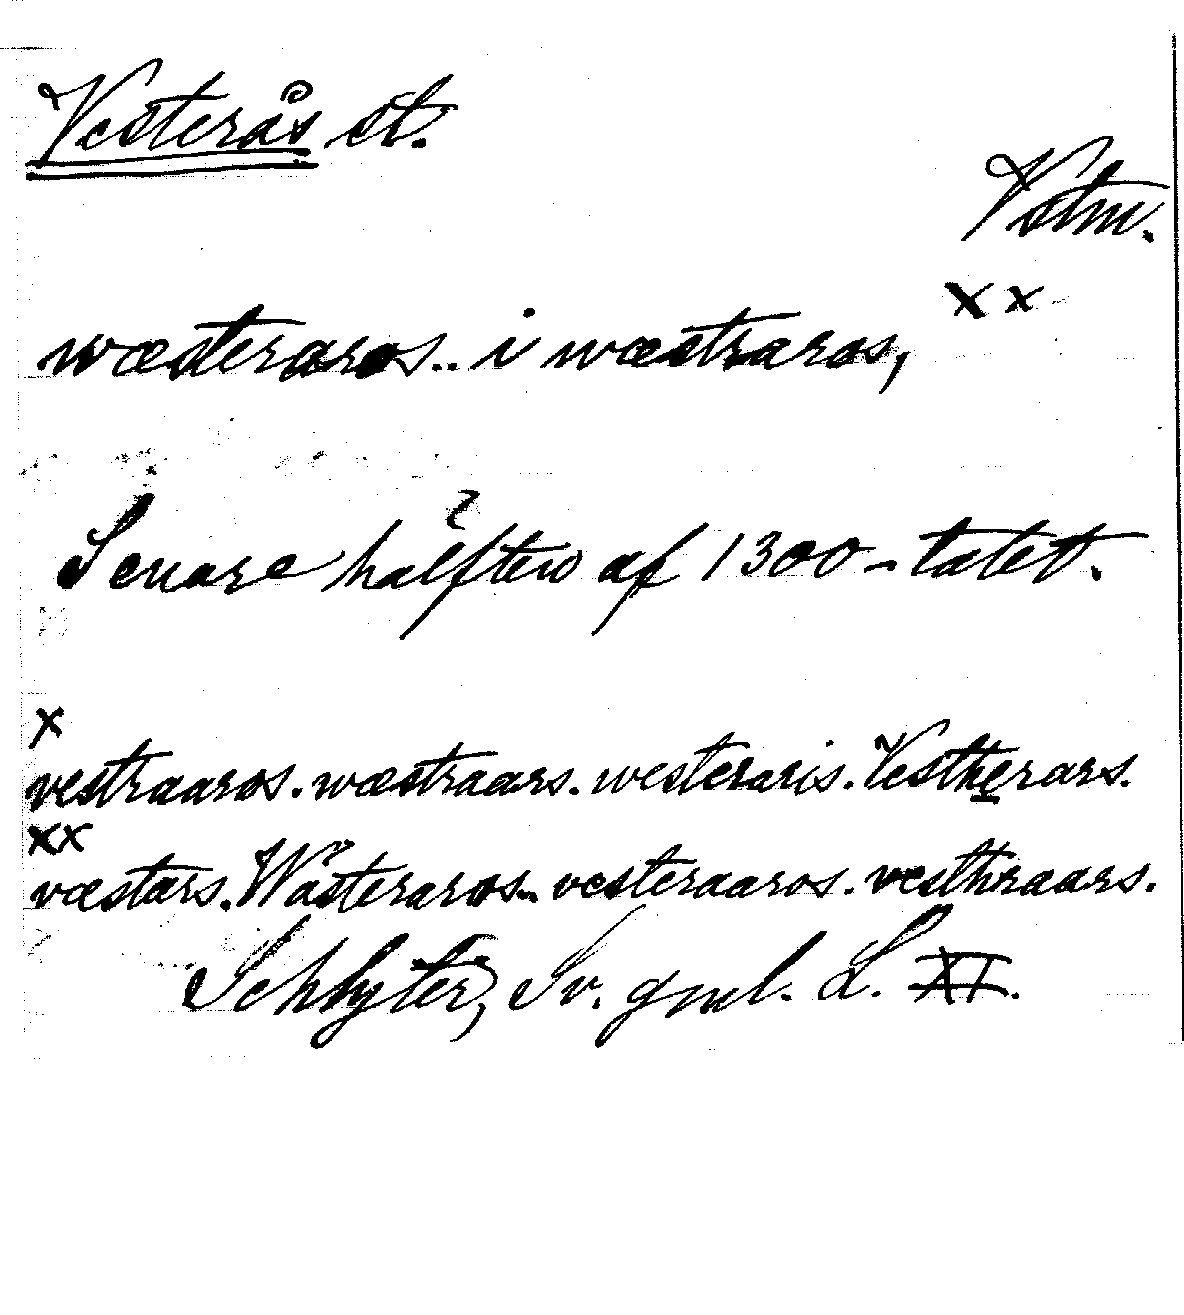 Vesterås st.
Vstm.
xx
wæsteraros.. i wæstraros,
Senare hälften af 1300-talet.
x
vestraaros. wæstraars. westeraris. Vestherars.
xx
væstars. Wästeraros. vesteraaros. vesthraars.
Schlyter, Sv. gml. L. XI.